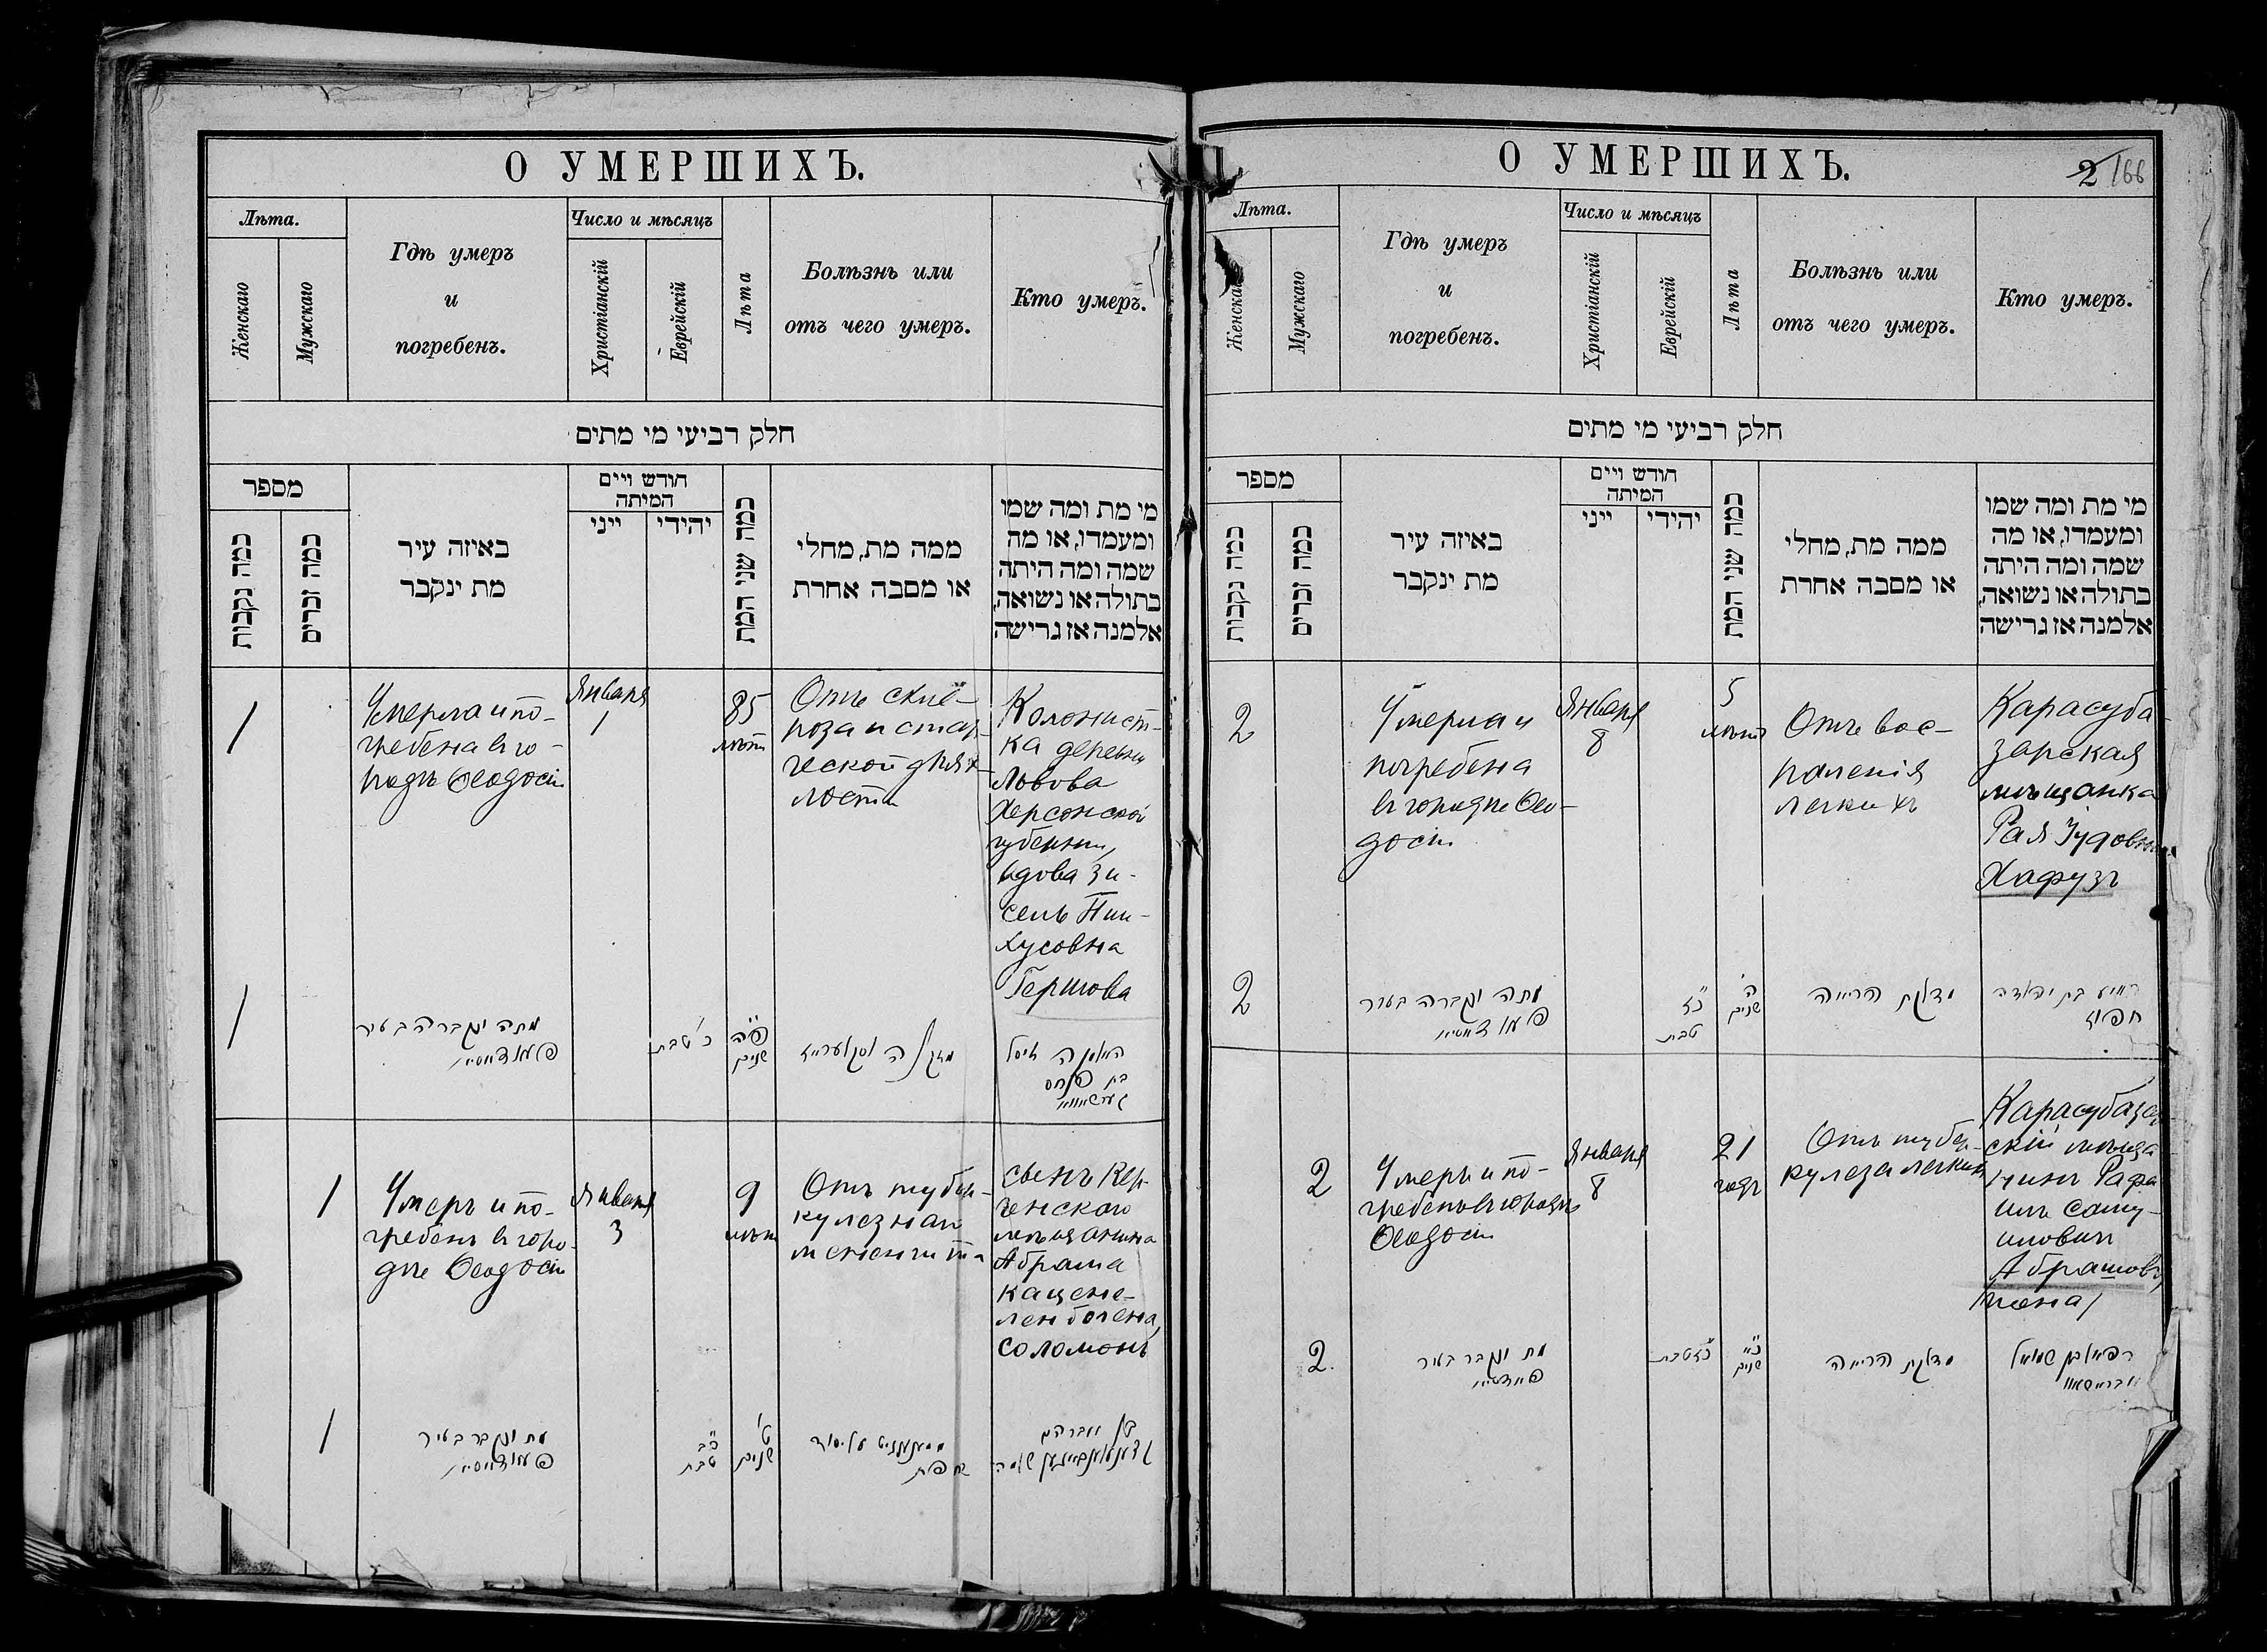 О УМЕРШИХЪ.
Лѣта.
Женскаго
Мужскаго
Гдѣ умеръ
и
погребенъ.
Число и мѣсяцъ
Христіанскій
Еврейскій
Лѣта
Болѣзнь или
отъ чего умеръ.
Кто умеръ.
חלק רביעי מי מתים
מספר
כמה נקבות
כמה זכרים
באיזה עיר
מת ינקבר
חודש ויים
המיתה
ייני
יהודי
כמה שני המת
ממה מת, מחלי
או מסבה אחרת
מי מת ומה שמו
ומעמדו, או מה
שמה ומה היתה
בתולה או נשואה,
אלמנה אז גרישה
1
Умерла и по-
гребена в го-
родѣ Ѳеодосіи
Января
1
85
лѣтъ
Отъ скле-
роза и стар-
ческой дрях-
лости
Колонист-
ка деревни
Львова
Херсонской
губерніи,
вдова Зи-
сель Пин-
хусовна
Гершова
1
מתה ונקברה בעיר
כ' טבת
פ"ה
שנים
האלמנה זיסל
בת פנחס
1
Умеръ и по-
гребенъ в горо-
дѣ Ѳеодосіи
Января
3
9
лѣтъ
Отъ тубер-
кулезнаго
менингита
сынъ Кер-
ченскаго
мѣщанина
Абрама
Кацене-
ленбогена,
Соломонъ
1
מת ונקבר בעיר
כ"ב
טבת
ט'
שנים
О УМЕРШИХЪ.
2 166
Лѣта.
Женскаго
Мужскаго
Гдѣ умеръ
и
погребенъ.
Число и мѣсяцъ
Христіанскій
Еврейскій
Лѣта
Болѣзнь или
отъ чего умеръ.
Кто умеръ.
חלק רביעי מי מתים
מספר
כמה נקבות
כמה זכרים
באיזה עיר
מת ינקבר
חודש ויים
המיתה
ייני
יהודי
כמה שני המת
ממה מת, מחלי
או מסבה אחרת
מי מת ומה שמו
ומעמדו, או מה
שמה ומה היתה
בתולה או נשואה,
אלמנה אז גרישה
2
Умерла и
погребена
в городѣ Ѳео-
досіи
Января
8
5
лѣтъ
Отъ вос-
паленія
легкихъ
Карасуба-
зарская
мѣщанка
Рая Іудовна
Хафузъ
2
מתה ונקברה בעיר
כ"ז
טבת
ה'
שנים
מדלקת הריאה
בת יהודה
חפוז
2
Умеръ и по-
гребенъ в городѣ
Ѳеодосіи
Января
8
21
годъ
Отъ тубер-
кулеза легкихъ
Карасубазар-
скій мѣща-
нинъ Рафа-
илъ Саму-
иловичъ
Абрашовъ
2.
מת ונקבר בעיר
כ"ז טבת
כ"א
שנים
מדלקת הריאה
רפאל בן שמואל